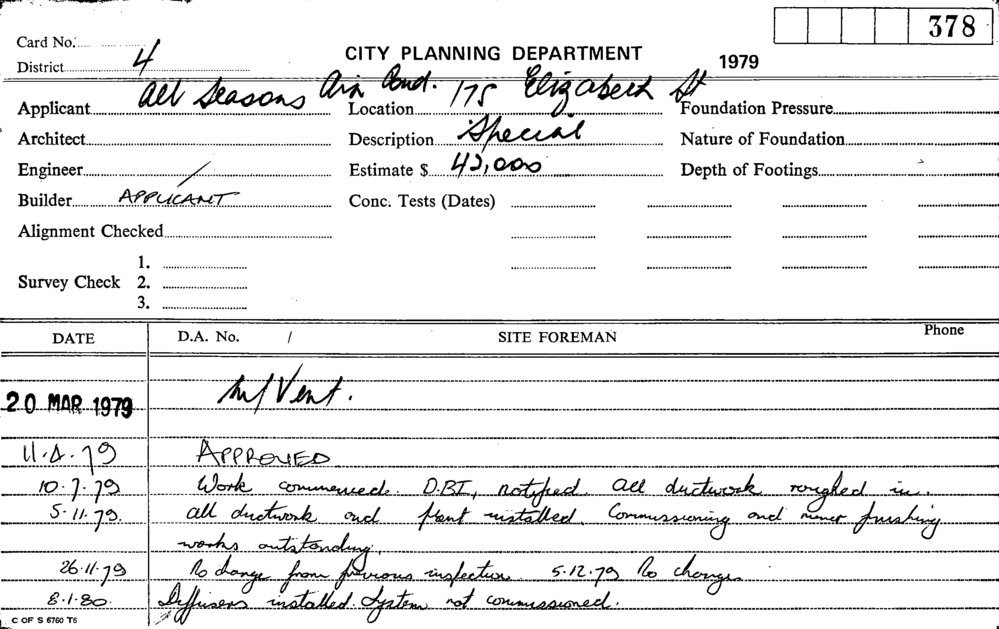 378
Card No.
District 4
CITY PLANNING DEPARTMENT
1979
Applicant All Seasons Air Cond. Location 175 Elizabeth St Foundation Pressure
Architect Description Special Nature of Foundation
Engineer / Estimate $ 42,000 Depth of Footings
Builder APPLICANT Conc. Tests (Dates)
Alignment Checked
1.
Survey Check 2.
3.
DATE D.A. No. / SITE FOREMAN Phone
20 MAR 1979 M/Vent.
11.4.79 APPROVED
10.7.79 Work commenced. D.B.I, notified. All ductwork roughed in.
5.11.79. all ductwork and plant installed. Commissioning and minor finishing
works outstanding.
26.11.79 No change from previous inspection. 5.12.79 No change
8.1.80. Diffusers installed. System not commissioned.
C OF S 6760 T6